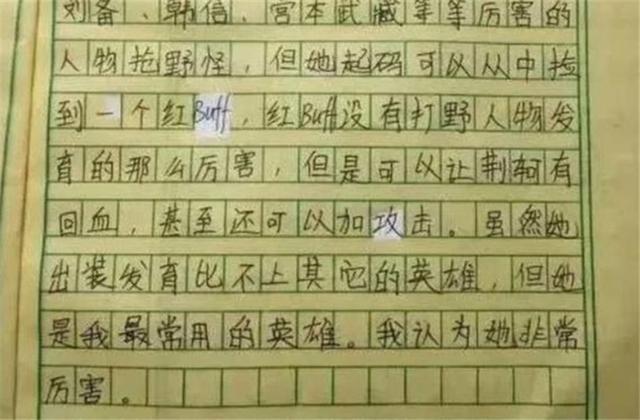 刘备、韩信、宫本武藏等等厉害的
人物抢野怪，但她起码可以从中捡
到一个红Buff，红Buff没有打野人物发
育的那么厉害，但是可以让荆轲有
回血，甚至还可以加攻击。虽然她
出装发育比不上其它的英雄，但她
是我最常用的英雄。我认为她非常
厉害。